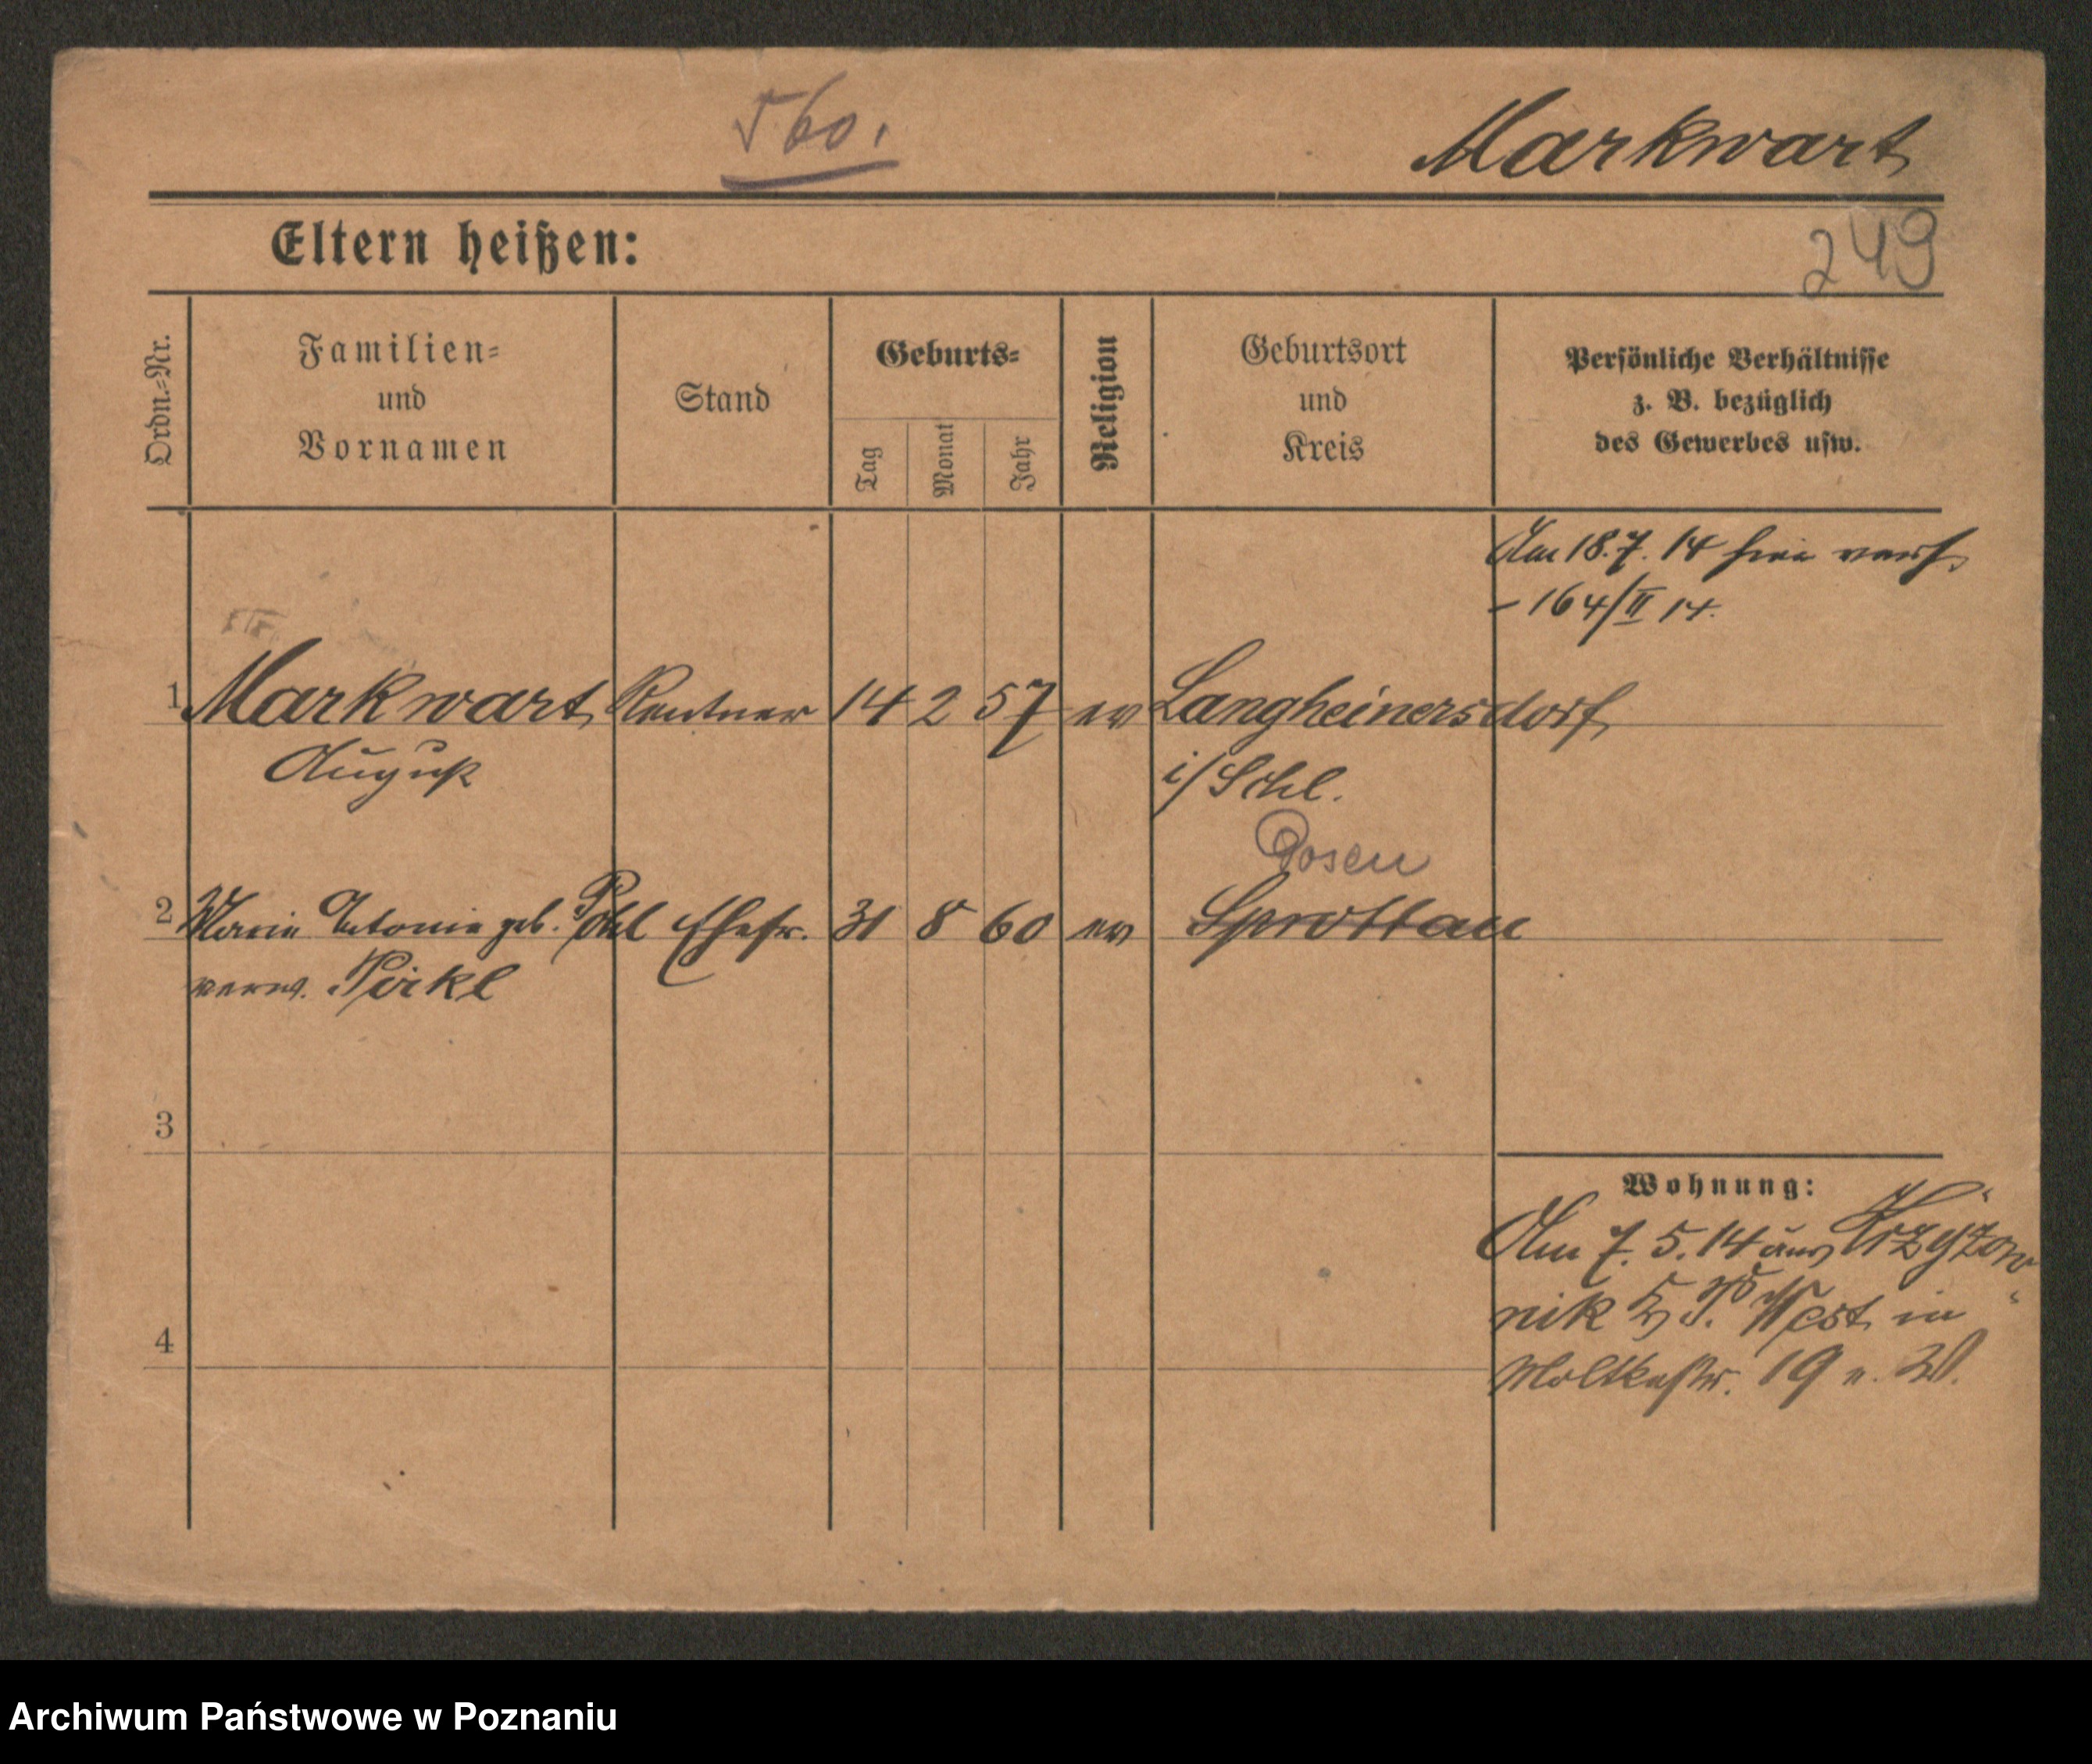 560.
Markwart
249
Eltern heißen:
Ordn.-Nr.
Familien-
und
Vornamen
Stand
Geburts-
Tag
Monat
Jahr
Religion
Geburtsort
und
Kreis
Persönliche Verhältnisse
z. B. bezüglich
des Gewerbes usw.
Am 18.7.14 hier
- 164/II 14.
1 Markwart Rentner 14 2 57 ev Langheinersdorf
August i/Schl.
Posen
2 Marie Antonie geb. Pohl Ehefr. 31 8 60 ev Sprottau
verw. Pirkl
3
4
Wohnung:
Am 7.5.14 aus Krzyżow
nik Kr P. West in
Moltkestr. 19 e. W.
Archiwum Państwowe w Poznaniu